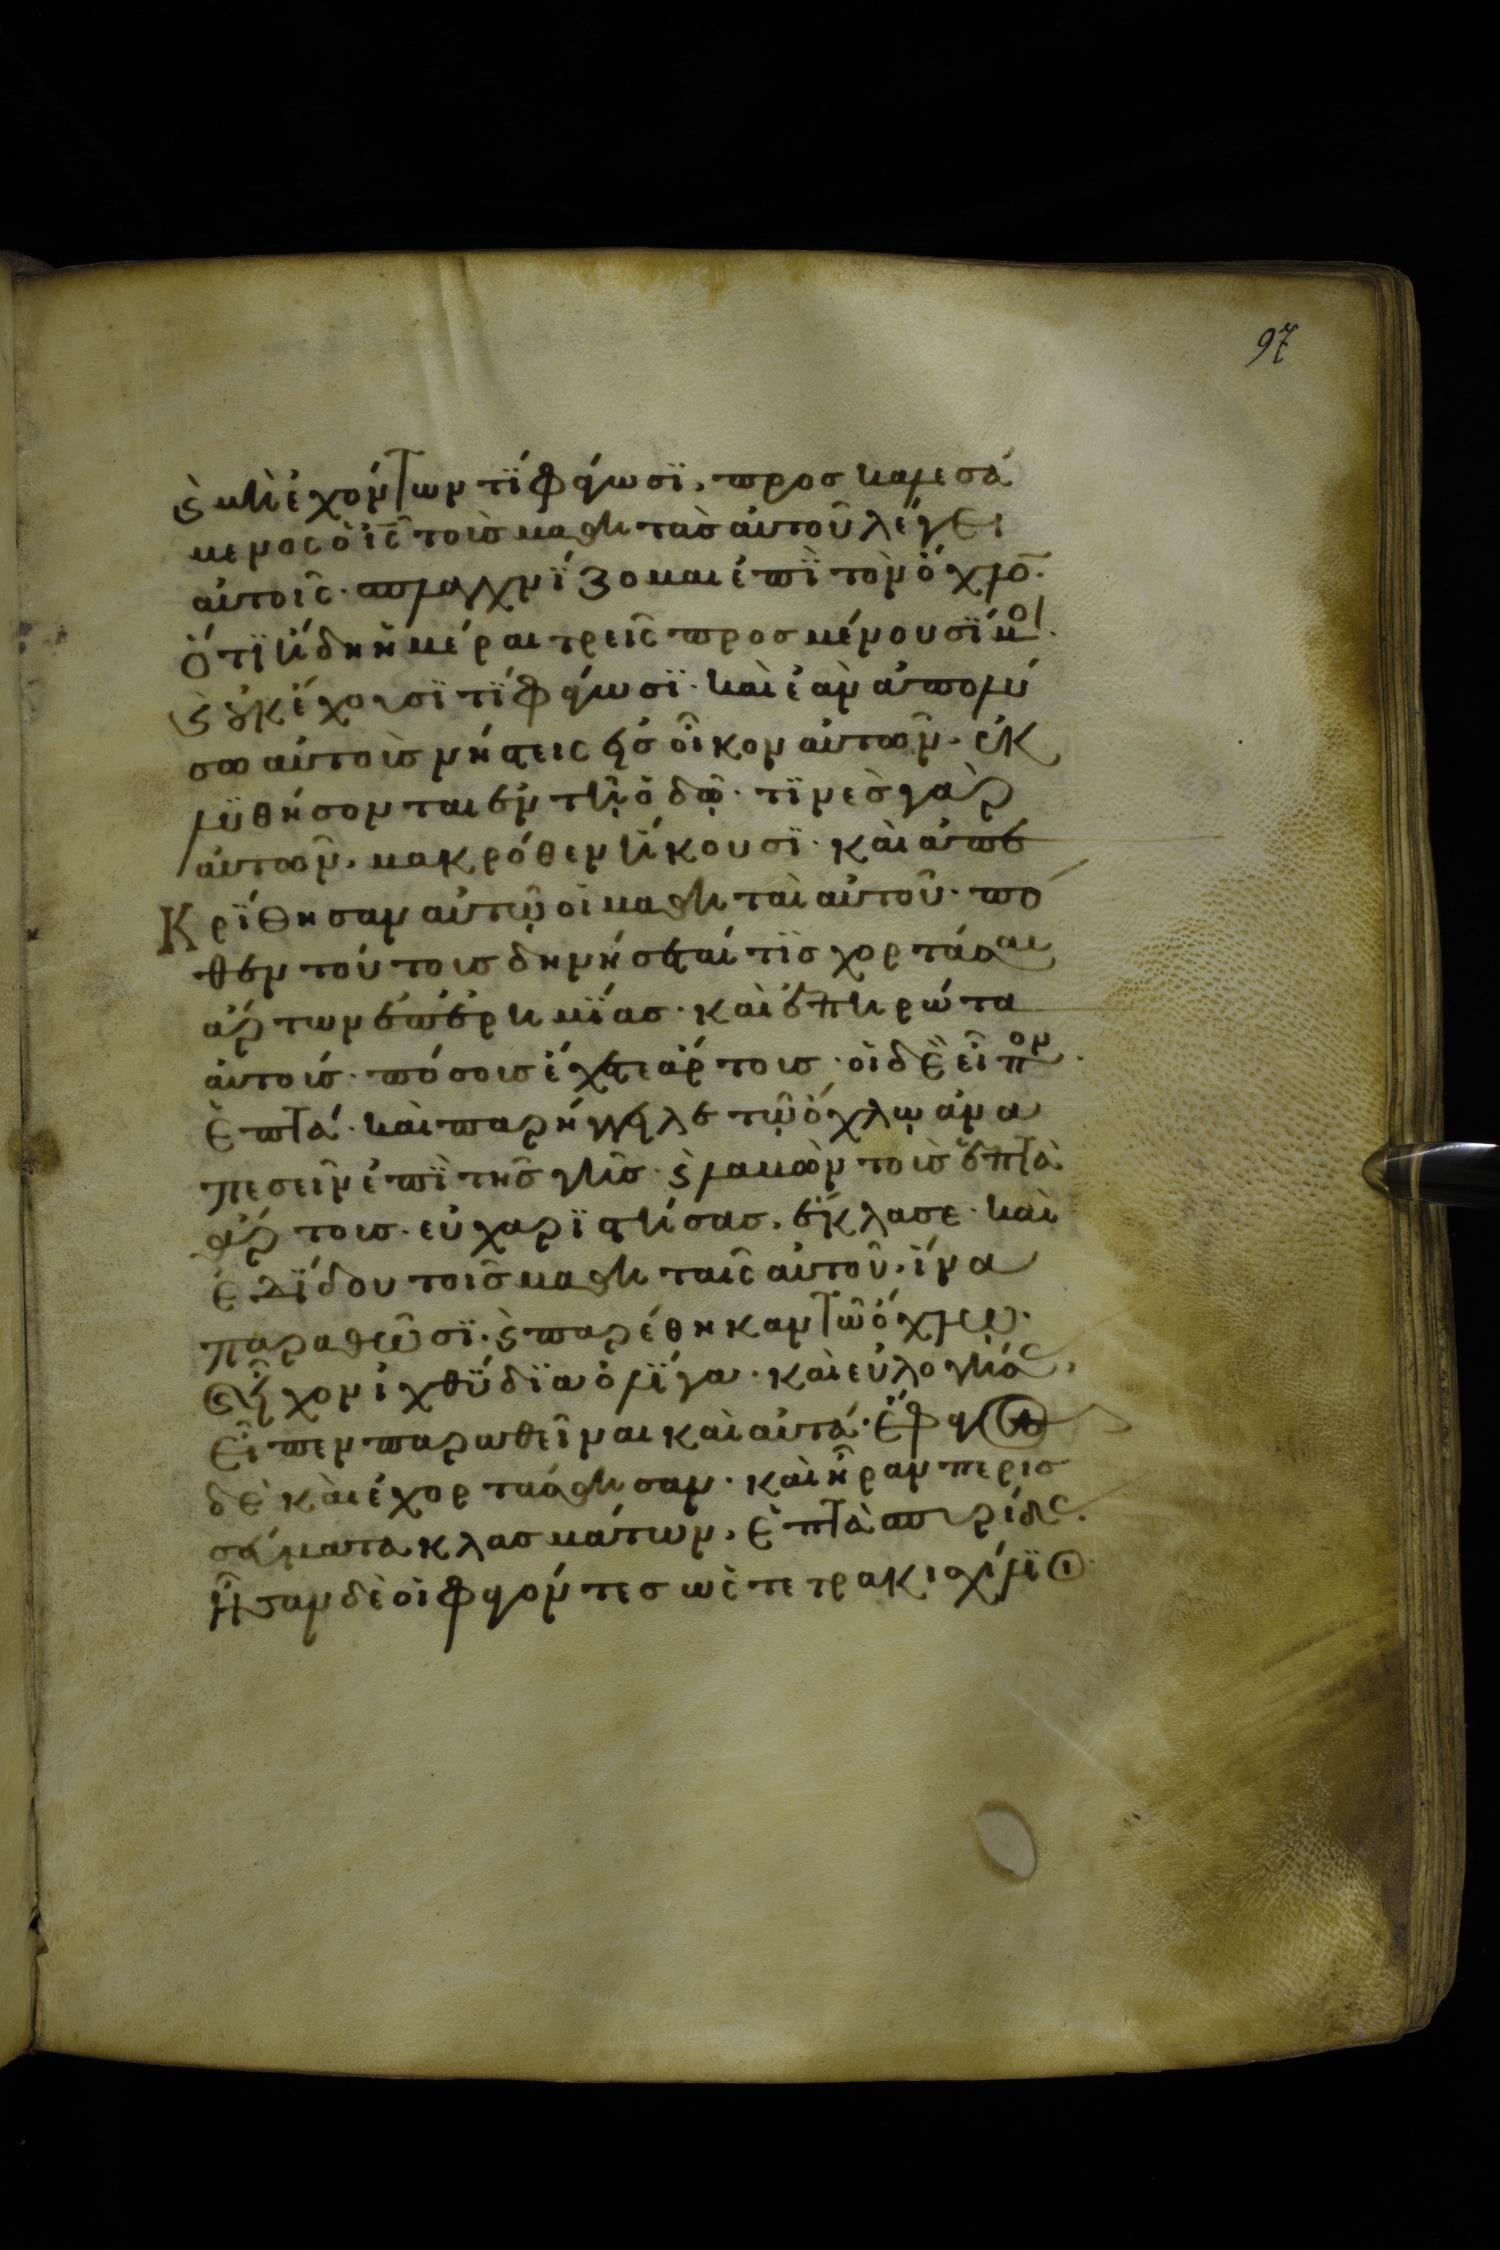 97
ϛ̀ μὴ ἐχόντων τί φάγωσϊ, προσκαλεσά
μενος ὁ ι̅ς̅ τοὺς μαθητὰς αὐτοῦ λέγει
αὐτοῖς· σπλαγχνΐζομαι ἐπῒ τὸν ὄχλο̅·
ὅτϊ ἤδη ἡμέραι τρεῖς προσμένουσΐ μοι·
ϛ̀ οὐκ ἔχουσϊ τΐ φάγωσϊ· καὶ ἐὰν ἀπολύ
σω αὐτοὺς νήστεις εἰς οἶκον αὐτῶν, ἐκ
λϋθήσονται ἐν τῇ ὁδῷ· τϊνὲς γὰρ
αὐτῶν, μακρόθεν ἥκουσϊ· καὶ ἀπε
κρΐθησαν αὐτῷ οἱ μαθηταὶ αὐτοῦ· πό
θεν τούτους δυνήσεταί τϊς χορτάσαι
ἄρτων ἐπ' ἐρημΐας· καὶ ἐπηρώτα
αὐτούς· πόσους ἔχετε ἄρτους· οἱ δὲ εἶπον·
ἑπτά· καὶ παρήγγειλε τῷ ὄχλῳ ἀνα
πεσεῖν ἐπῒ τῆς γῆς· ϛ̀ λαβὼν τοὺς ἑπτὰ
ἄρτους· εὐχαρϊστήσας, ἔκλασε· καὶ
ἐδΐδου τοῖς μαθηταῖς αὐτοῦ, ἵνα
παραθῶσϊ· ϛ̀ παρέθηκαν τῷ ὄχλω·
ϛ̀ εἶχον ἰχθΰδϊα ὀλΐγα· καὶ εὐλογήσας,
εἶπεν παραθεῖναι καὶ αὐτά· ἔφαγον
δὲ καὶ ἐχορτάσθησαν· καὶ ἦραν περισ
σεύματα κλασμάτων, ἑπτὰ σπυρίδας·
ἦσαν δὲ οἱ φαγόντες ὡς τετρακισχίλϊοι·